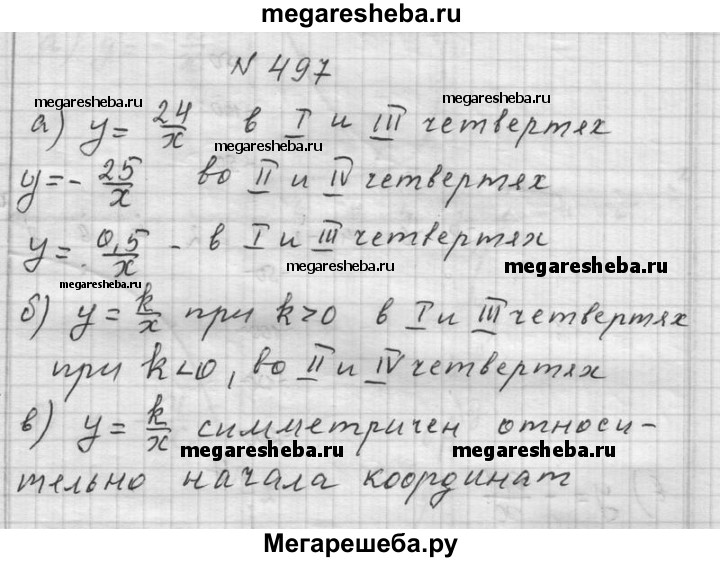 megaresheba.ru
N 497
megaresheba.ru megaresheba.ru
а) y = 24/x в I и III четвертях
megaresheba.ru
y = - 25/x во II и IV четвертях
y = 0,5/x - в I и III четвертях
megaresheba.ru megaresheba.ru
megaresheba.ru
б) y = k/x при k>0 в I и III четвертях
при k<0, во II и IV четвертях
в) y = k/x симметричен относи-
megaresheba.ru megaresheba.ru
тельно начала координат
Мегарешеба.ру